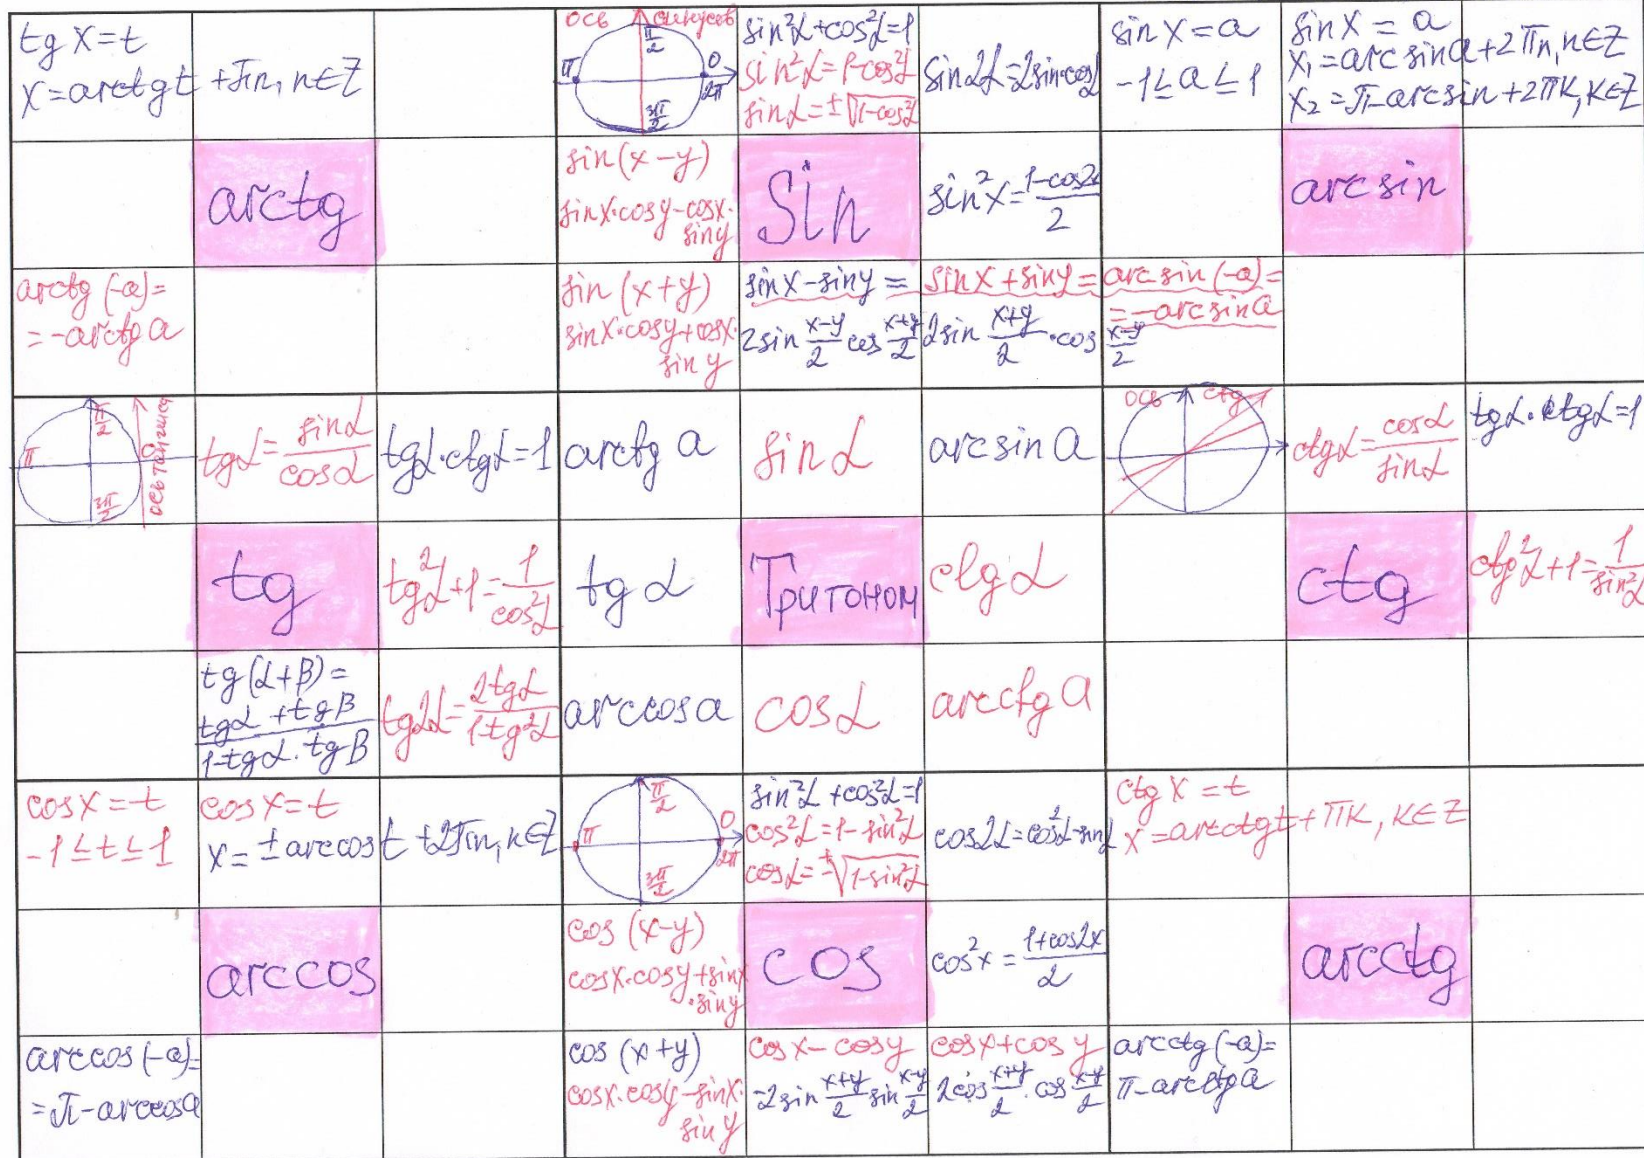 tg x = t
x = arctg t + πn, n∈Z
ось синусов
π/2
π
0
2π
3π/2
sin²α+cos²α=1
sin²α=1-cos²α
sinα=±√1-cos²α
sin2α=2sin·cosα
sin x = a
-1≤a≤1
sin x = a
x₁=arcsin a+2πn, n∈Z
x₂=π-arcsin+2πk, k∈Z
arctg
sin(x-y)
sinx·cosy-cosx·
siny
Sin
sin²x=1-cos2x/2
arcsin
arctg(-a)=
=-arctg a
sin(x+y)
sinx·cosy+cosx·
siny
sinx-siny=
2sin x-y/2 cos x+y/2
sinx+siny=
2sin x+y/2 ·cos x-y/2
arcsin(-a)=
=-arcsin a
π/2
π
0
3π/2
ось тангенса
tgα=sinα/cosα
tgα·ctgα=1
arctg a
sinα
arcsin a
ось ctg
ctgα=cosα/sinα
tgα·ctgα=1
tg
tg²α+1=1/cos²α
tgα
Тригоном
ctgα
ctg
ctg²α+1=1/sin²α
tg(α+β)=
tgα+tgβ/1-tgα·tgβ
tg2α=2tgα/1-tg²α
arccos a
cosα
arcctg a
cos x = t
-1≤t≤1
cos x = t
x=±arccos t+2πn, n∈Z
π/2
π
0
2π
3π/2
sin²α+cos²α=1
cos²α=1-sin²α
cosα=±√1-sin²α
cos2α=cos²α-sin²α
ctg x = t
x=arcctg t+πk, k∈Z
arccos
cos(x-y)
cosx·cosy+sinx
·siny
cos
cos²x=1+cos2x/2
arcctg
arccos(-a)=
=π-arccosa
cos(x+y)
cosx·cosy-sinx·
siny
cosx-cosy
=-2sin x+y/2 sin x-y/2
cosx+cosy
2cos x+y/2 ·cos x-y/2
arcctg(-a)=
π-arcctg a